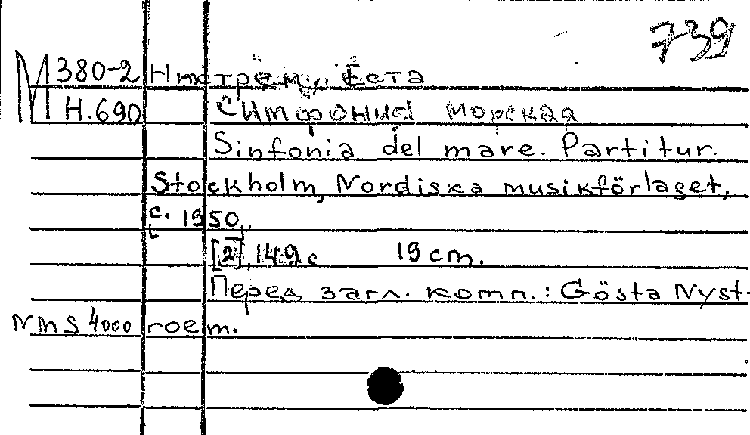 739
М 380-2 Нюстрём, Ёста
Н.690 Симфония морская
Sinfonia del mare. Partitur.
Stockholm, Nordiska musikförlaget,
c. 1950.
[2] 149 с 19 cm.
Перед загл. комп.: Gösta Nyst-
NMS 4000 roem.